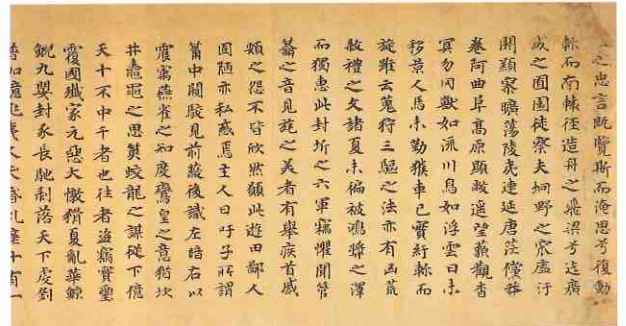 之忠言既覽斯而淹思兮復動
軫而南轅徑造舟之飛梁兮迄廣
成之囿徒夫坰野之廬汙
開顯曠蕩連延唐茫莽
卷阿曲阜高原顯敞遙望藐觀杳
冥勿罔獸如流川鳥如浮雲日未
移景人馬未勤獲車已實紆軫而
旋雖云蒐狩三驅之法亦有凶荒
殺禮之文諸夏未徧被鴻獎之澤
而獨惠此封圻之六軍竊懼聞管
籥之音見旄之義者有舉疾首蹙
頞之怨不皆欣然願此遊田鄙人
固陋亦私惑焉主人曰吁子所謂
管中闚見前蔽後識左暗右以
燕雀之知度鸞皇之意猶坎
井黽之思筭蛟龍之謀從下億
天十不中千者也往者盜竊寶璽
覆國殲家元惡大憝猾夏亂華鯨
鯢九嬰封豕長虵剥落天下虔劉